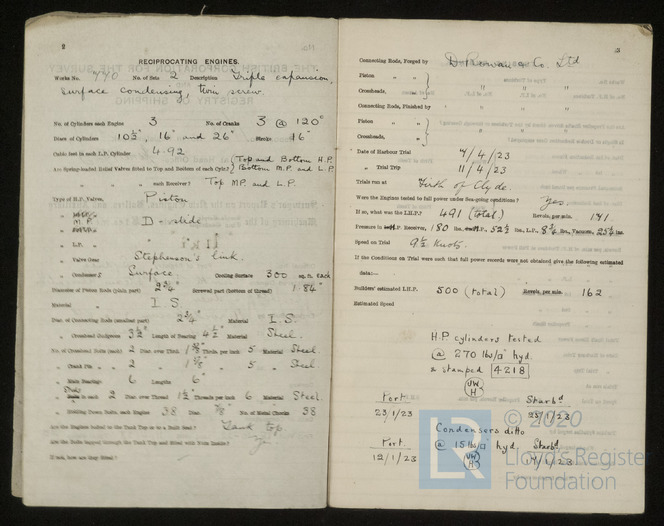 2
RECIPROCATING ENGINES.
Works No. 790 No. of Sets 2 Description Triple expansion,
surface condensing, twin screw.
No. of Cylinders each Engine 3 No. of Cranks 3 @ 120°
Diams of Cylinders 10½", 16" and 26" Stroke 16"
Cubic feet in each L.P. Cylinder 4.92
Are Spring-loaded Relief Valves fitted to Top and Bottom of each Cylr.? (Top and Bottom H.P.
(Bottom M.P. and L.P.
" " each Receiver? Top M.P. and L.P.
Type of H.P. Valves, Piston
M.P. " D-slide
" L.P. "
" Valve Gear Stephenson's link.
" Condenser Surface. Cooling Surface 300 sq. ft. each
Diameter of Piston Rods (plain part) 2¾" Screwed part (bottom of thread) 1.84"
Material I.S.
Diar. of Connecting Rods (smallest part) 2¾" Material I.S.
" Crosshead Gudgeons 3½" Length of Bearing 4½" Material Steel.
No. of Crosshead Bolts (each) 2 Diam. over Thrd. Thrds. per inch 5 Material Steel.
" Crank Pin " 2 " " 5 " Steel
" Main Bearings 6 Lengths 6"
" in each 2 Diam. over Thread 1½" Threads per inch 6 Material Steel
" Holding Down Bolts, each Engine 38 Diam. ⅞" No. of Metal Chocks 38
Are the Engines bolted to the Tank Top or to a Built Seat? Tank top
Are the Bolts tapped through the Tank Top and fitted with Nuts Inside?
If not, how are they fitted?
3
Connecting Rods, Forged by D. Rowan & Co. Ltd
Piston " "
Crossheads, " " "
Connecting Rods, Finished by " "
Piston " "
Crossheads, " "
Date of Harbour Trial 7/4/23
" Trial Trip 11/4/23
Trials run at Firth of Clyde.
Were the Engines tested to full power under Sea-going conditions? Yes.
If so, what was the I.H.P.? 491 (total) Revols. per min. 171
Pressure in Receiver, 180 lbs., M.P., 52½ lbs., L.P., 8¾ lbs., Vacuum, 25½ ins.
Speed on Trial 9½ Knots.
If the Conditions on Trial were such that full power records were not obtained give the following estimated
data:—
Builders' estimated I.H.P. 500 (total) Revols. per min. 162
Estimated Speed
H.P. cylinders tested
@ 270 lbs/□" hyd.
& stamped 4218
UW
H
Port Starbd
23/1/23 23/1/23
Condensers ditto
@ 15 lb/□" hyd.
Port Starbd.
12/1/23 UW H 17/1/23
© 2020
LR
Lloyd's Register
Foundation